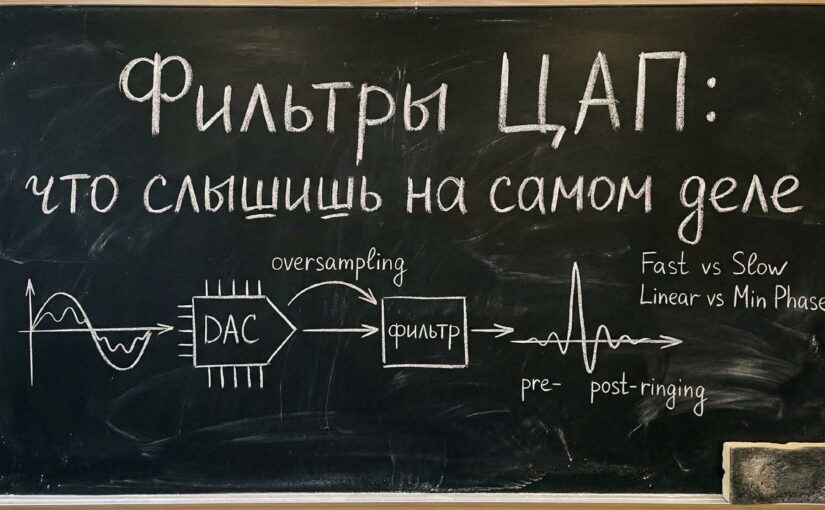 Фильтры ЦАП:
что слышишь на самом деле
oversampling
DAC
фильтр
Fast vs Slow
Linear vs Min Phase
pre- post-ringing